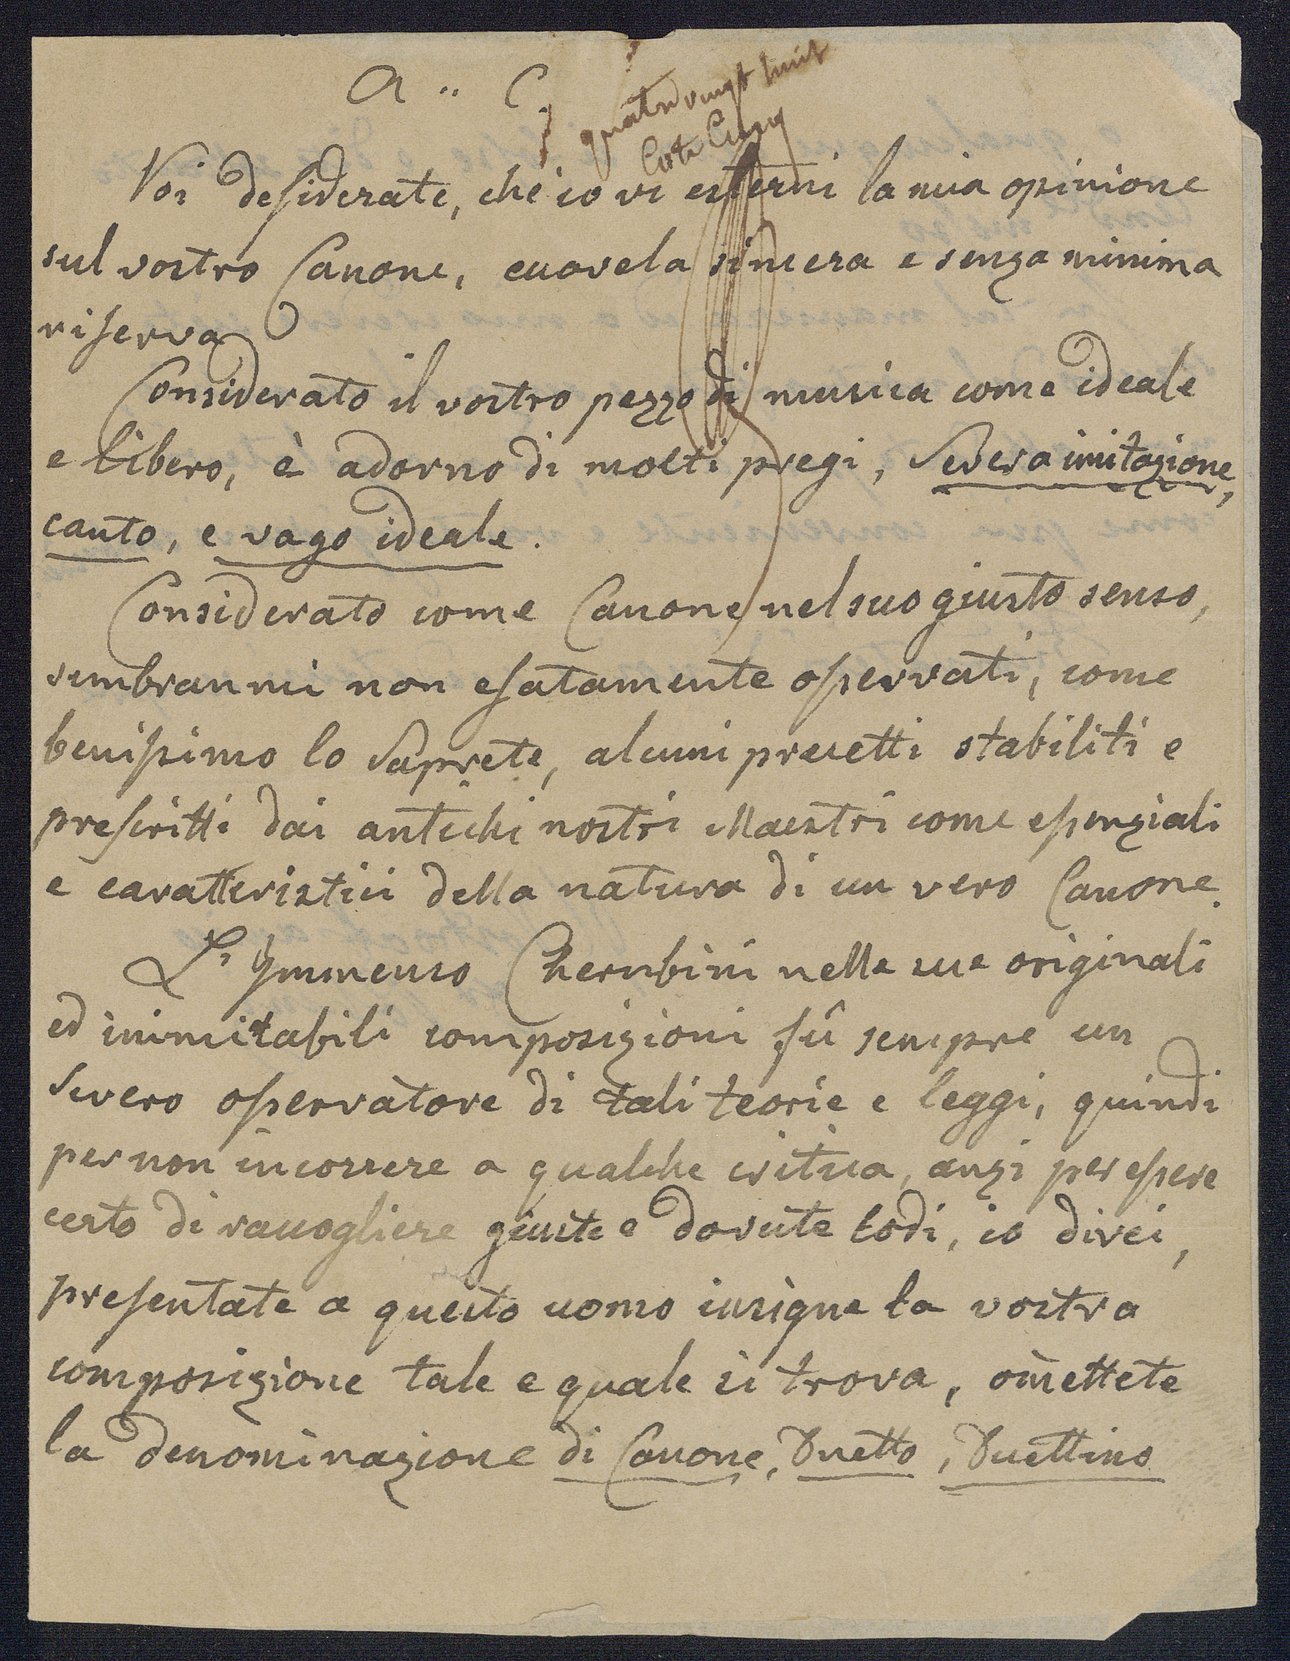 A.. C.
quatre vingt huit
Cote Cinq
Voi desiderate, che io vi esterni la mia opinione
sul vostro Canone, eccovela sincera e senza minima
riserva
Considerato il vostro pezzo di musica come ideale
e libero, è adorno di molti pregi, Severa imitazione,
canto, e vago ideale.
Considerato come Canone nel suo giusto senso,
sembranmi non esatamente osservati, come
benissimo lo Saprete, alcuni precetti stabiliti e
prescritti dai antichi nostri Maestri come essenziali
e caratteristici della natura di un vero Canone.
L'Immenso Cherubini nelle sue originali
ed inimitabili composizioni fû sempre un
Severo osservatore di tali teorie e leggi, quindi
per non incorrere a qualche critica, anzi per essere
certo di raccogliere giuste e dovute lodi, io direi,
presentate a questo uomo insigne la vostra
composizione tale e quale si trova, omettete
la denominazione di Canone, Duetto, Duettino